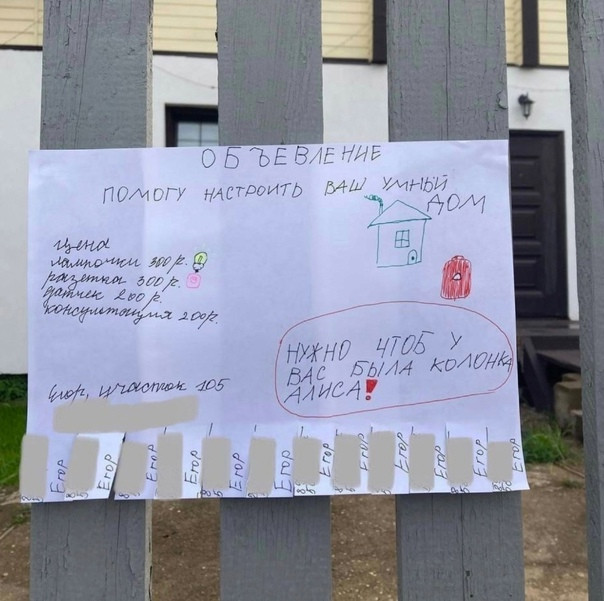 ОБЪЕВЛЕНИЕ
ПОМОГУ НАСТРОИТЬ ВАШ УМНЫЙ
ДОМ
цена
лампочки 300 р.
разетка 300 р.
датчек 200 р.
консультация 200 р.
НУЖНО ЧТОБ У
ВАС БЫЛА КОЛОНКА
АЛИСА!
Егор, участок 105
Егор
Егор
Егор
Егор
Егор
Егор
Егор
Егор
Егор
Егор
Егор
Егор